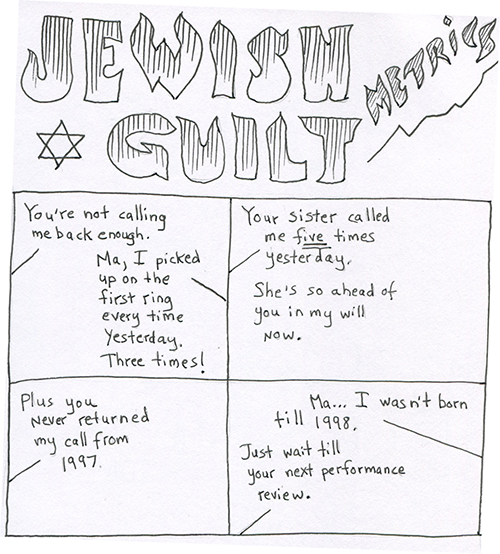 JEWISH
METRICS
GUILT
You're not calling
me back enough.
Ma, I picked
up on the
first ring
every time
yesterday.
Three times!
Your sister called
me five times
yesterday.
She's so ahead of
you in my will
now.
Plus you
never returned
my call from
1997.
Ma... I wasn't born
till 1998.
Just wait till
your next performance
review.